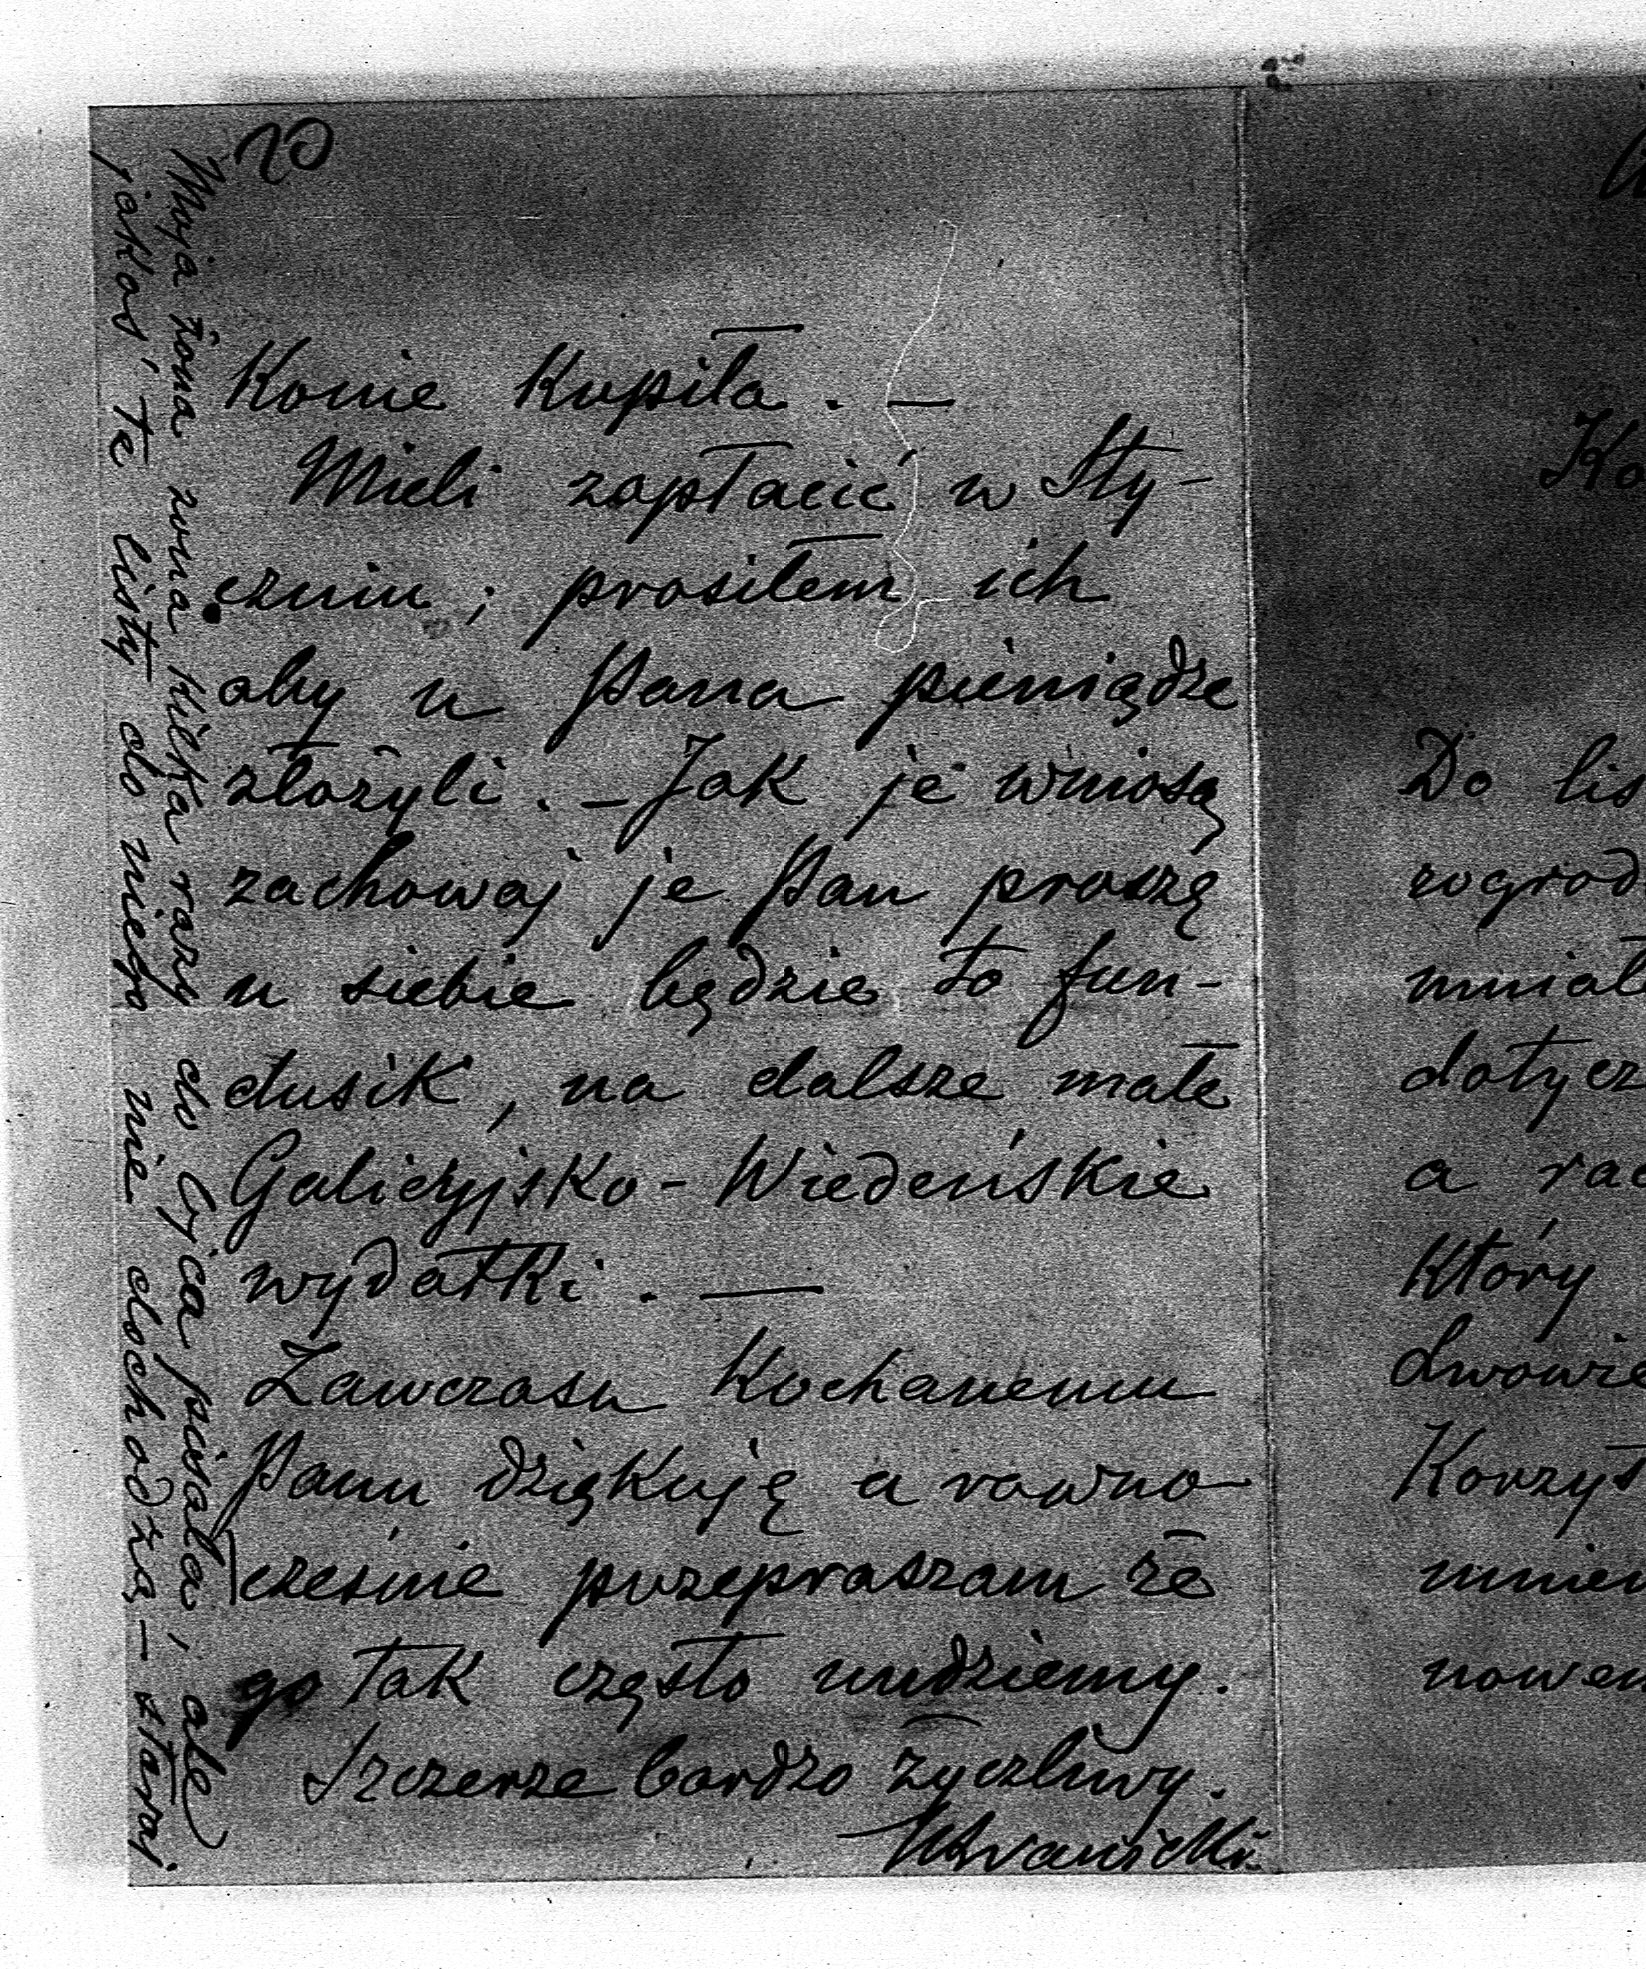 20
Konie kupiła. —
Mieli zapłacić w Sty-
czniu; prosiłem ich
aby u Pana pieniądze
złożyli. — Jak je wniosą
zachowaj je Pan proszę
u siebie będzie to fun-
dusik, na dalsze małe
Galicyjsko - Wiedeńskie
wydatki. —
Zawczasu Kochanemu
Panu dziękuję a rowno
cześnie przepraszam że
go tak często nudziemy.
Szczerze bardzo życzliwy.
Moja żona kilka razy do Ojca pisała, ale
jakoś te listy do niego nie dochodzą —
Do lis
rogrod
mniał
dotycz
a rac
Który
Lwowie
Korzyst
mnien
nowem